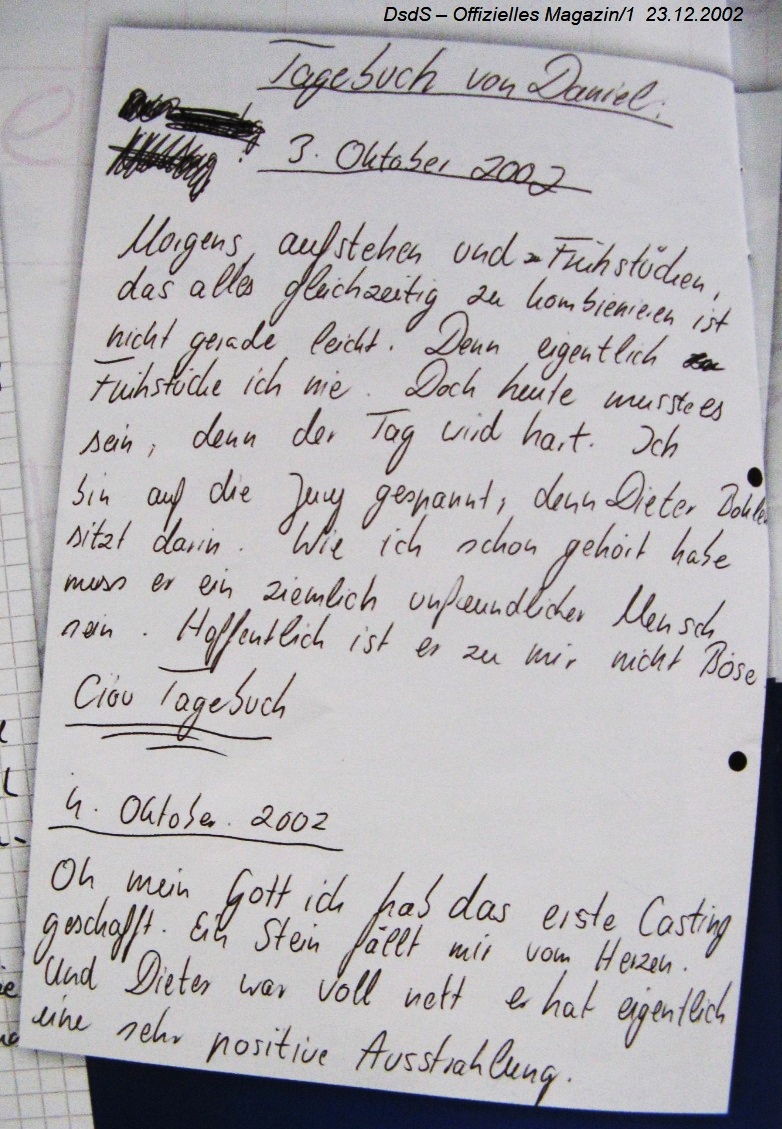 DsdS – Offizielles Magazin/1 23.12.2002
Tagebuch von Daniel:
3. Oktober 2002
Morgens, aufstehen und Frühstücken,
das alles gleichzeitig zu kombienieren ist
nicht gerade leicht. Denn eigentlich
Frühstücke ich nie. Doch heute musste es
sein, denn der Tag wird hart. Ich
bin auf die Jury gespannt, denn Dieter Bohlen
sitzt darin. Wie ich schon gehört habe
muss er ein ziemlich unfreundlicher Mensch
sein. Hoffentlich ist er zu mir nicht Böse
Ciou Tagebuch
4. Oktober. 2002
Oh mein Gott ich hab das erste Casting
geschafft. Ein Stein fällt mir vom Herzen.
Und Dieter war voll nett er hat eigentlich
eine sehr positive Ausstrahlung.